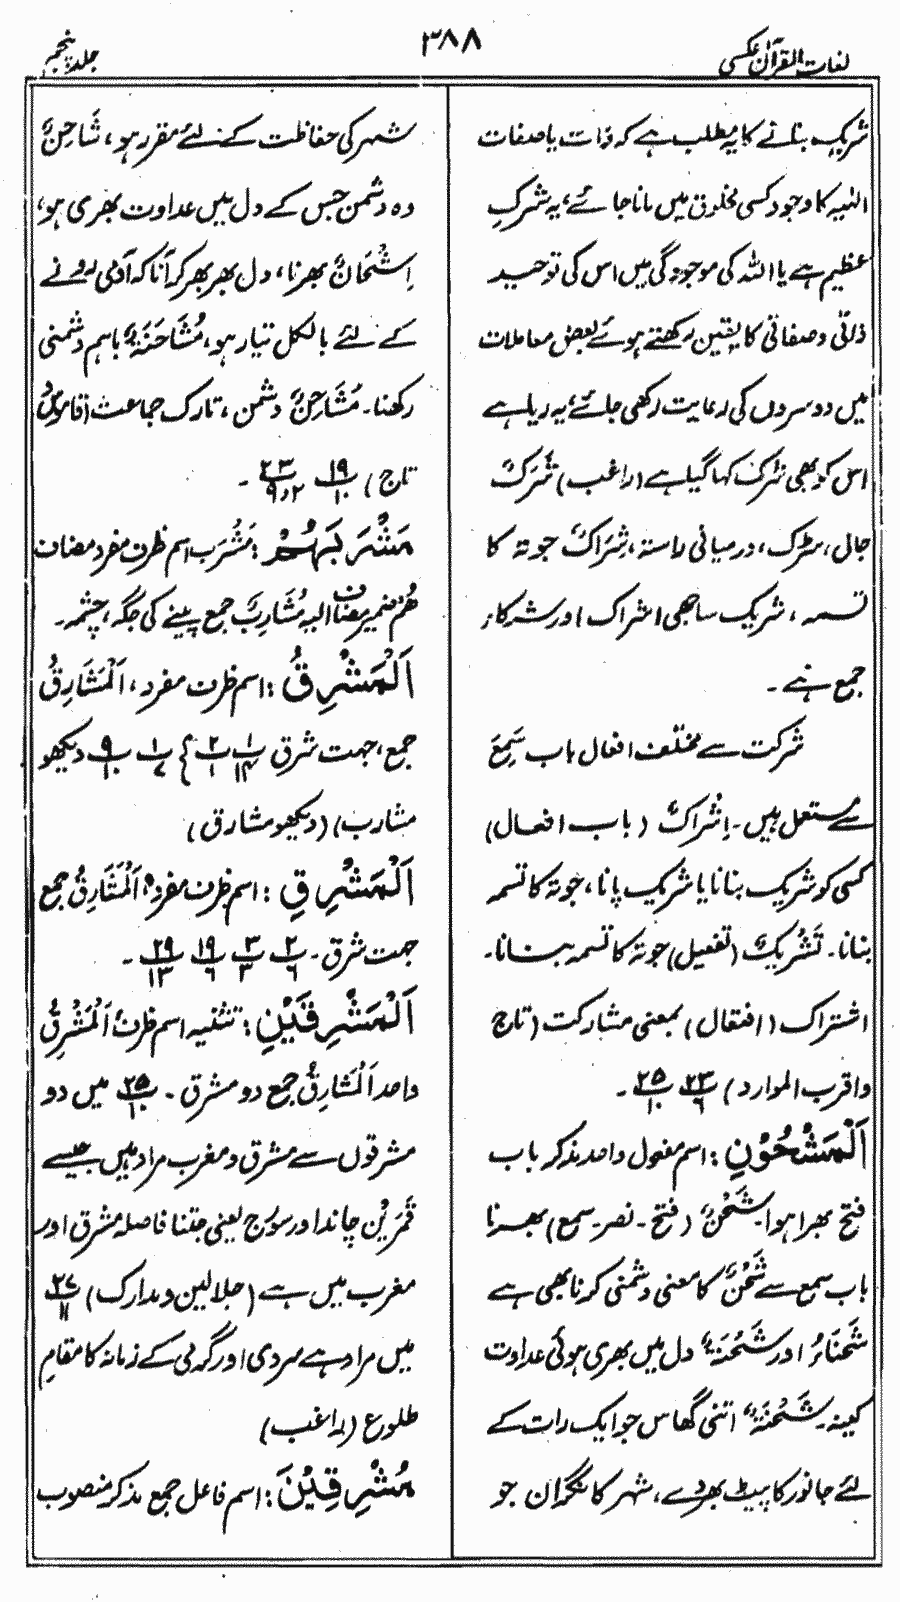 لغات القرآن عکسی
۳۸۸
جلد پنجم
شریک بنانے کا یہ مطلب ہے کہ ذات یا صفات
الٰہیہ کا وجود کسی مخلوق میں مانا جائے، یہ شرکِ
عظیم ہے یا اللہ کی موجودگی میں اس کی توحید
ذاتی و صفاتی کا یقین رکھتے ہوئے بعض معاملات
میں دوسروں کی رعایت رکھی جائے، یہ ریا ہے
اس کو بھی شرک کہا گیا ہے (راغب) شَرَکٌ
جال، سڑک، درمیانی راستہ، شِرَاکٌ جوتہ کا
تسمہ، شریک ساجھی اشراک اور شرکاء
جمع ہے۔
شرکت سے مختلف افعال باب سَمِعَ
سے مستعمل ہیں۔ اِشْرَاکٌ (باب افعال)
کسی کو شریک بنانا یا شریک پانا، جوتہ کا تسمہ
بنانا۔ تَشْرِیْکٌ (تفعیل) جوتہ کا تسمہ بنانا۔
اشتراک (افتعال) بمعنی مشارکت (تاج
واقرب الموارد) ۲۳/۶ ۲۵/۱۰۔
اَلْمَشْحُوْنِ: اسم مفعول واحد مذکر باب
فتح بھرا ہوا۔ شَحْنٌ (فتح۔ نصر۔ سمع) بھرنا
باب سمع سے شَحْنٌ کا معنی دشمنی کرنا بھی ہے
شَحْنَاءُ اور شَحْنَۃٌ دل میں بھری ہوئی عداوت
کینہ۔ شَحْنَۃٌ اتنی گھاس جو ایک رات کے
لئے جانور کا پیٹ بھر دے، شہر کا نگران جو
شہر کی حفاظت کے لئے مقرر ہو، شَاحِنٌ
وہ دشمن جس کے دل میں عداوت بھری ہو،
اِشْحَانٌ بھرنا، دل بھر بھر کر آنا کہ آدمی رونے
کے لئے بالکل تیار ہو، مُشَاحَنَۃٌ باہم دشمنی
رکھنا۔ مُشَاحِنٌ دشمن، تارک جماعت (قاموس
تاج) ۱۹/۱۰ ۲۳/۹،۲۔
مَشْرَبَہُمْ: مَشْرَب اسم ظرف مفرد مضاف
ھُمْ ضمیر مضاف الیہ مُشَارِبٌ جمع پینے کی جگہ، چشمہ۔
اَلْمَشْرِقُ: اسم ظرف مفرد، اَلْمَشَارِقُ
جمع، جہت شرق ۱/۱۴ ۲/۱ } ۱/۷ ۹/۱۰ دیکھو
مشارب) (دیکھو مشارق)
اَلْمَشْرِقِ: اسم ظرف مفرد، اَلْمَشَارِقُ جمع
جہت شرق۔ ۲/۶ ۳/۳ ۱۹/۶ ۲۹/۱۳۔
اَلْمَشْرِقَیْنِ: تثنیہ اسم ظرف اَلْمَشْرِقُ
واحد اَلْمَشَارِقُ جمع دو مشرق۔ ۲۵/۱۰ میں دو
مشرقوں سے مشرق و مغرب مراد ہیں جیسے
قَمَرَیْن چاند اور سورج یعنی جتنا فاصلہ مشرق اور
مغرب میں ہے (جلالین و مدارک) ۲۷/۱۱
میں مراد ہے سردی اور گرمی کے زمانہ کا مقامِ
طلوع (راغب)
مُشْرِقِیْنَ: اسم فاعل جمع مذکر منصوب